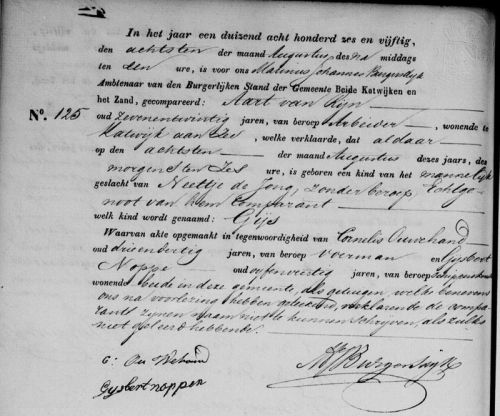 In het jaar een duizend acht honderd zes en vijftig,
den achtsten der maand Augustus des na middags
ten een ure, is voor ons Matinus Johannes Burgerdijk
Ambtenaar van den Burgerlijken Stand der Gemeente Beide Katwijken en
het Zand, gecompareerd: Aart van Rijn
No. 125
oud zevenentwintig jaren, van beroep Arbeider, wonende te
Katwijk aan Zee, welke verklaarde, dat aldaar
op den achtsten der maand Augustus dezes jaars, des
morgens ten zes ure, is geboren een kind van het mannelijk
geslacht van Neeltje de Jong, zonder beroep, Echtge
noot van hem Comparant
welk kind wordt genaamd: Gijs
Waarvan akte opgemaakt in tegenwoordigheid van Cornelis Ouwehand
oud drieendertig jaren, van beroep Voerman en Gijsbert
Noppe oud vijfenveertig jaren, van beroep
wonende beide in deze gemeente, als getuigen, welke benevens
ons na voorlezing hebben geteekend, verklarende de compa
rant zijnen naam niet te kunnen schrijven, als zulks
niet geleerd hebbende.
C: Ou Wehand
Gysbert noppen
MJBurgerdijk